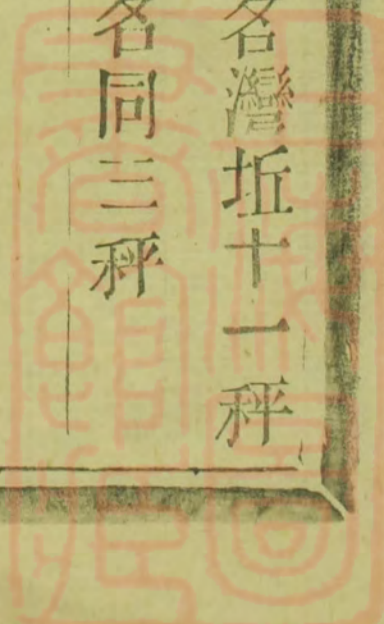 名灣坵十一秤
名同三秤